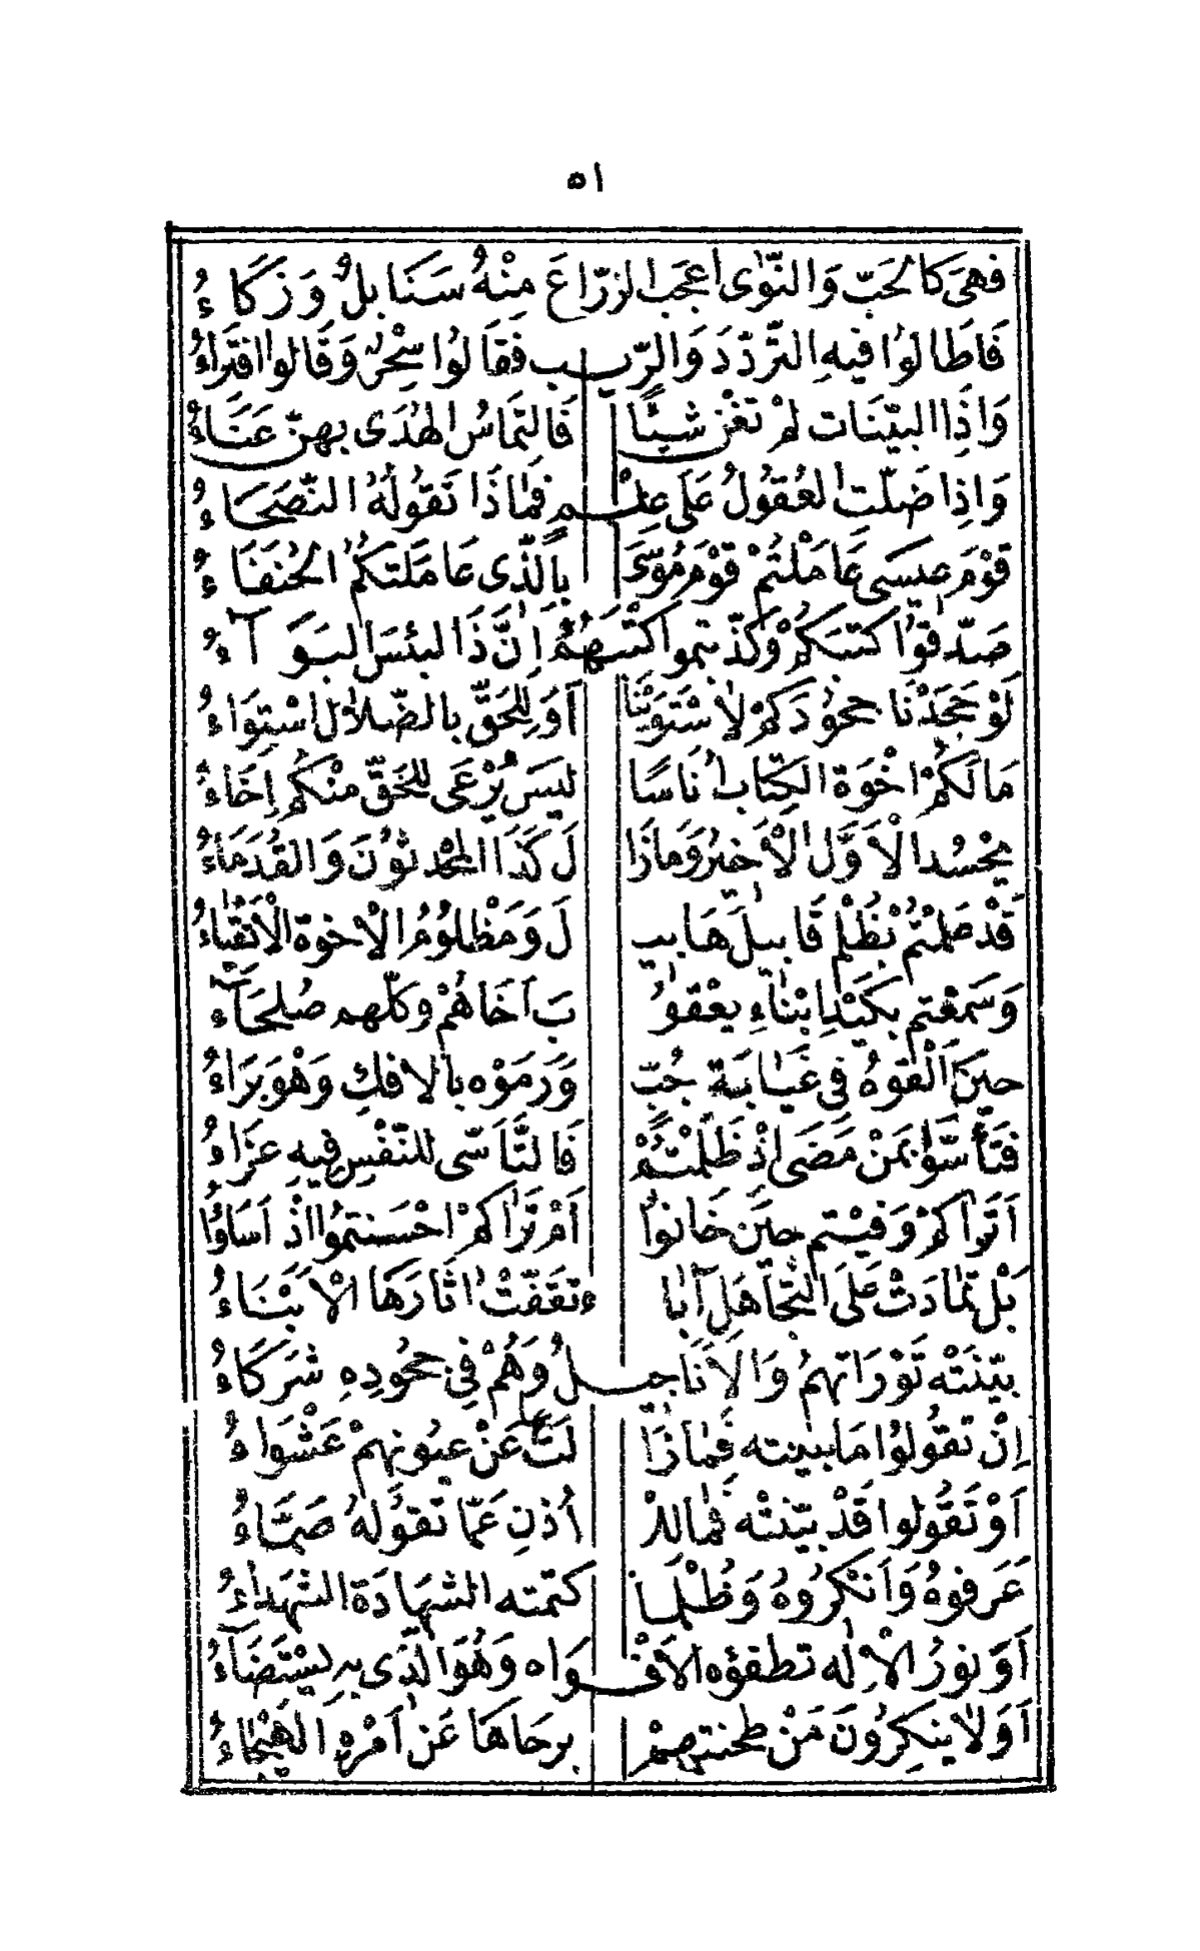 ٥١
فَهِيَ كَالْحَبِّ وَالنَّوٰى اَعْجَبَ الزُّرَّاعَ مِنْهُ سَنَابِلُ وَزَكَاءُ
فَاَطَالُوْا فِيهِ التَّرَدُّدَ وَالرَّيْبَ فَقَالُوْا سِحْرٌ وَقَالُوا افْتِرَاءُ
وَاِذَا الْبَيِّنَاتُ لَمْ تُغْنِ شَيْئًا فَالْتِمَاسُ الْهُدٰى بِهِنَّ عَنَاءُ
وَاِذَا ضَلَّتِ الْعُقُوْلُ عَلٰى عِلْمٍ فَمَاذَا تَقُوْلُهُ النُّصَحَاءُ
قَوْمَ عِيْسٰى عَامَلْتُمْ قَوْمَ مُوْسٰى بِالَّذِى عَامَلَتْكُمُ الْحُنَفَاءُ
صَدَّقُوْا كُتْبَكُمْ وَكَذَّبْتُمُوا كُتْبَهُمْ اِنَّ ذَا لَبِئْسَ الْبَوَآءُ
لَوْ جَحَدْنَا جُحُوْدَكُمْ لَاسْتَوَيْنَا اَوَ لِلْحَقِّ بِالضَّلَالِ اسْتِوَاءُ
مَالَكُمْ اِخْوَةَ الْكِتَابِ اُنَاسًا لَيْسَ يُرْعٰى لِلْحَقِّ مِنْكُمْ اِخَاءُ
يَحْسُدُ الْاَوَّلَ الْاَخِيْرُ وَمَازَا لَ كَذَا الْمُحْدَثُوْنَ وَالْقُدَمَاءُ
قَدْ عَلِمْتُمْ بِظُلْمِ قَابِيْلَ هَابِيـ لَ وَمَظْلُوْمُ الْاِخْوَةِ الْاَتْقِيَاءُ
وَسَمِعْتُمْ بِكَيْدِ اَبْنَاءِ يَعْقُوْ بَ اَخَاهُمْ وَكُلُّهُمْ صُلَحَآءُ
حِيْنَ اَلْقَوْهُ فِى غَيَابَةِ جُبٍّ وَرَمَوْهُ بِالْاِفْكِ وَهْوَ بَرَاءُ
فَتَأَسَّوْا بِمَنْ مَضٰى اِذْ ظُلِمْتُمْ فَالتَّاَسِّى لِلنَّفْسِ فِيْهِ عَزَاءُ
اَتَرَاكُمْ وَفَيْتُمْ حِيْنَ خَانُوْا اَمْ تَرَاكُمْ اَحْسَنْتُمُوا اِذْ اَسَاؤُا
بَلْ تَمَادَتْ عَلَى التَّجَاهُلِ آبَا ءٌ تَقَفَّتْ اٰثَارَهَا الْاَبْنَاءُ
بَيَّنَتْهُ تَوْرَاتُهُمْ وَالْاَنَاجِيْلُ وَهُمْ فِى جُحُوْدِهِ شُرَكَاءُ
اِنْ تَقُوْلُوْا مَا بَيَّنَتْهُ فَمَازَا لَتْ بِهَا عَنْ عُيُوْنِهِمْ عَشْوَاءُ
اَوْ تَقُوْلُوا قَدْ بَيَّنَتْهُ فَمَا لِلْـ اُذْنِ عَمَّا تَقُوْلُهُ صَمَّاءُ
عَرَفُوْهُ وَاَنْكَرُوْهُ وَظُلْمًا كَتَمَتْهُ الشَّهَادَةَ الشُّهَدَاءُ
اَوَ نُوْرُ الْاِلٰهِ تُطْفِؤُهُ الْاَفْوَاهُ وَهُوَ الَّذِى بِهِ يُسْتَضَآءُ
اَوَلَا يُنْكِرُوْنَ مَنْ طَحَنَتْهُمْ بِرَحَاهَا عَنْ اَمْرِهِ الْهَيْجَاءُ